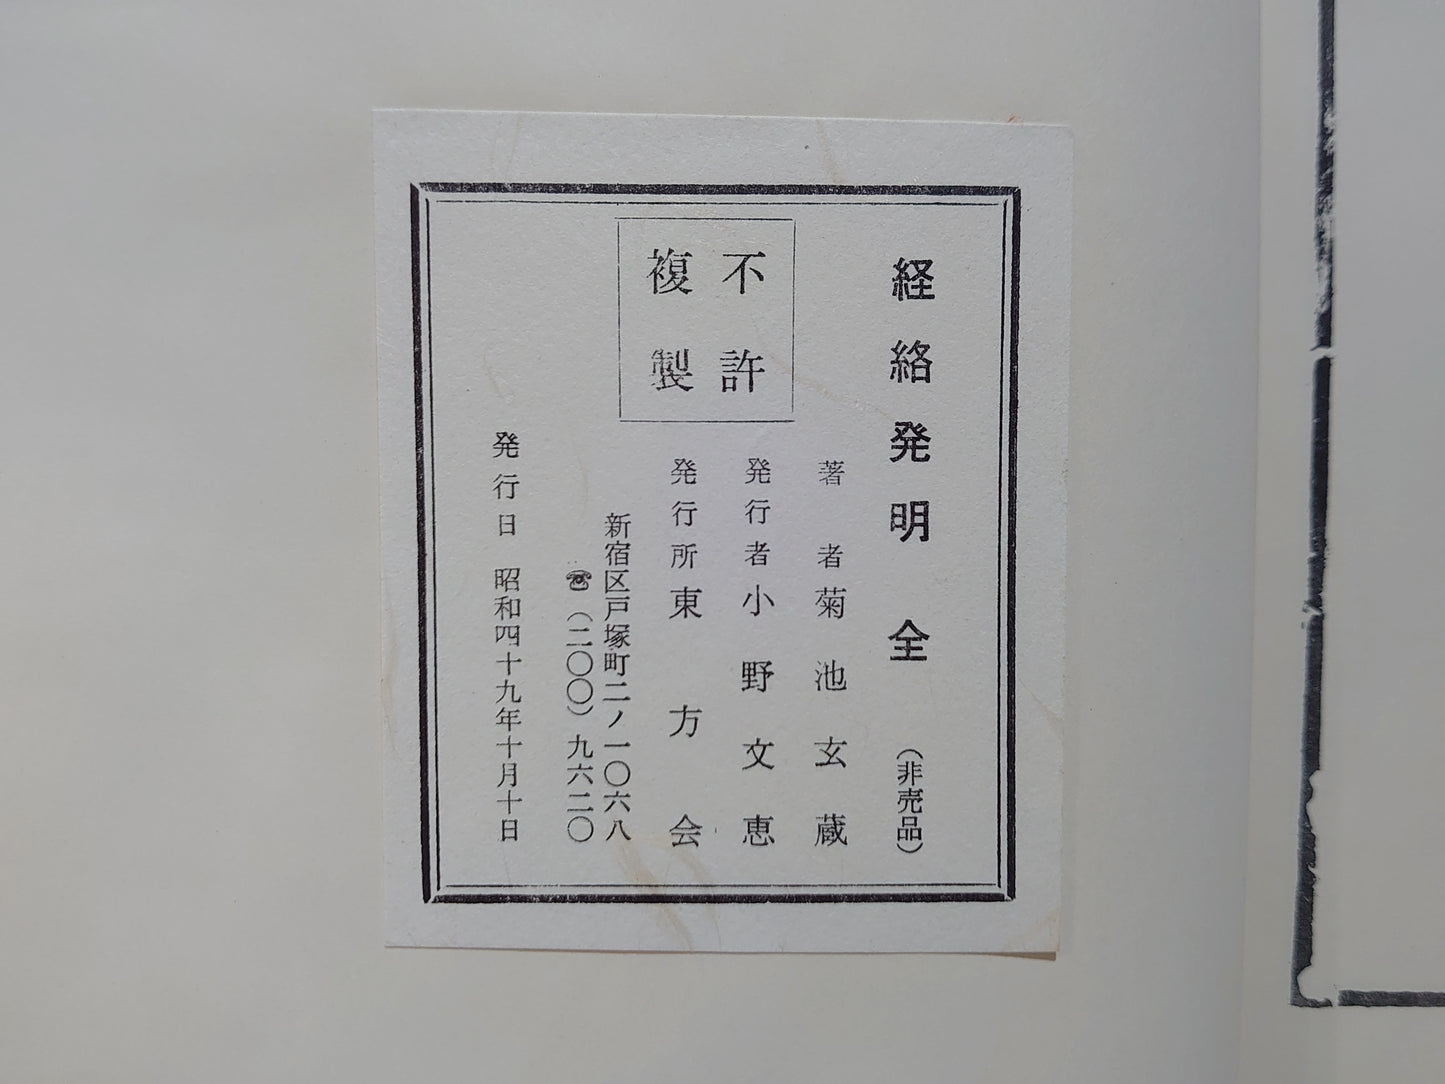 経絡発明 全 （非売品）
不許
複製
著者 菊池玄蔵
発行者 小野文恵
発行所 東方会
新宿区戸塚町二ノ一〇六八
☎（二〇〇）九六二〇
発行日 昭和四十九年十月十日